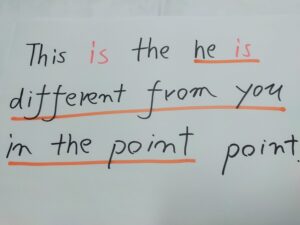 This is the he is
different from you
in the point point.